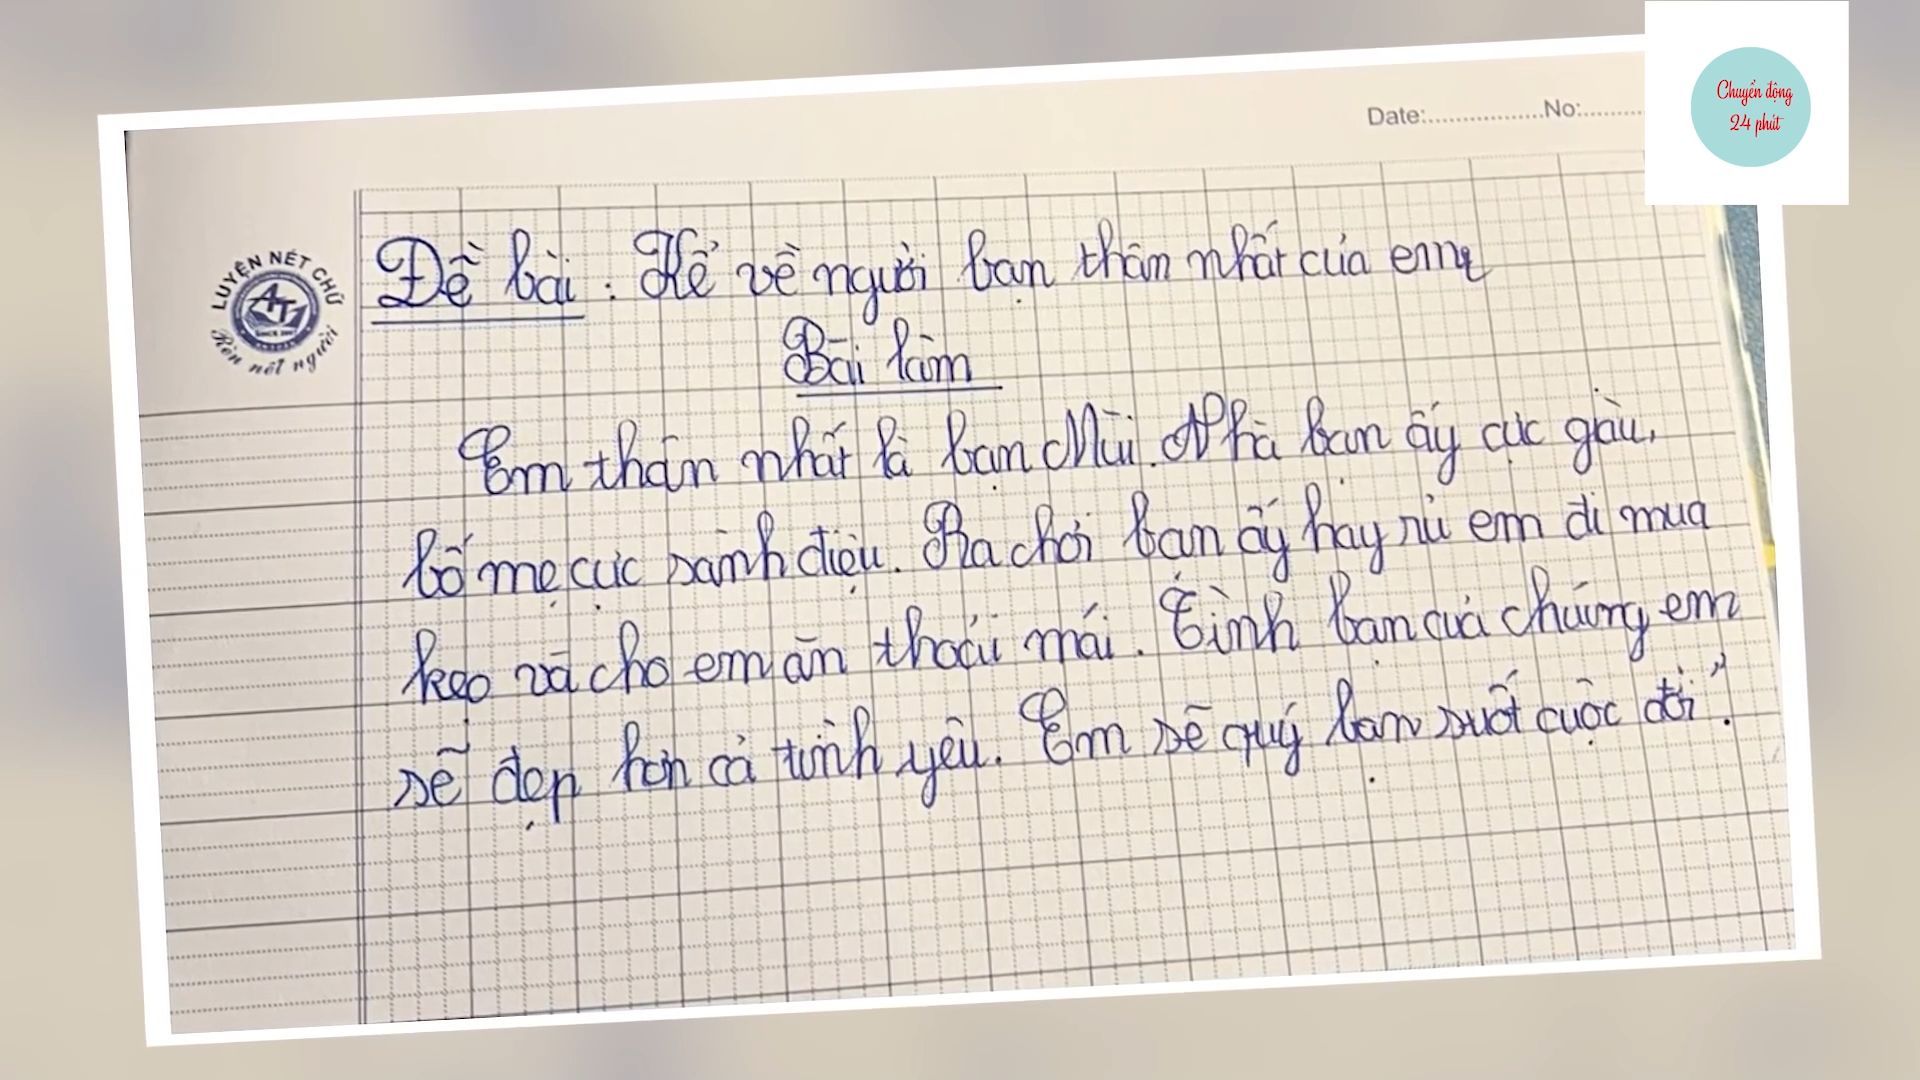 Chuyển động
24 phút
Date:.................No:..........
LUYỆN NÉT CHỮ
Rèn nết người
Đề bài: Kể về người bạn thân nhất của em
Bài làm
Em thân nhất là bạn Mùi. Nhà bạn ấy cực giàu,
bố mẹ cực sành điệu. Ra chơi bạn ấy hay rủ em đi mua
kẹo và cho em ăn thoải mái. Tình bạn của chúng em
sẽ đẹp hơn cả tình yêu. Em sẽ quý bạn suốt cuộc đời".